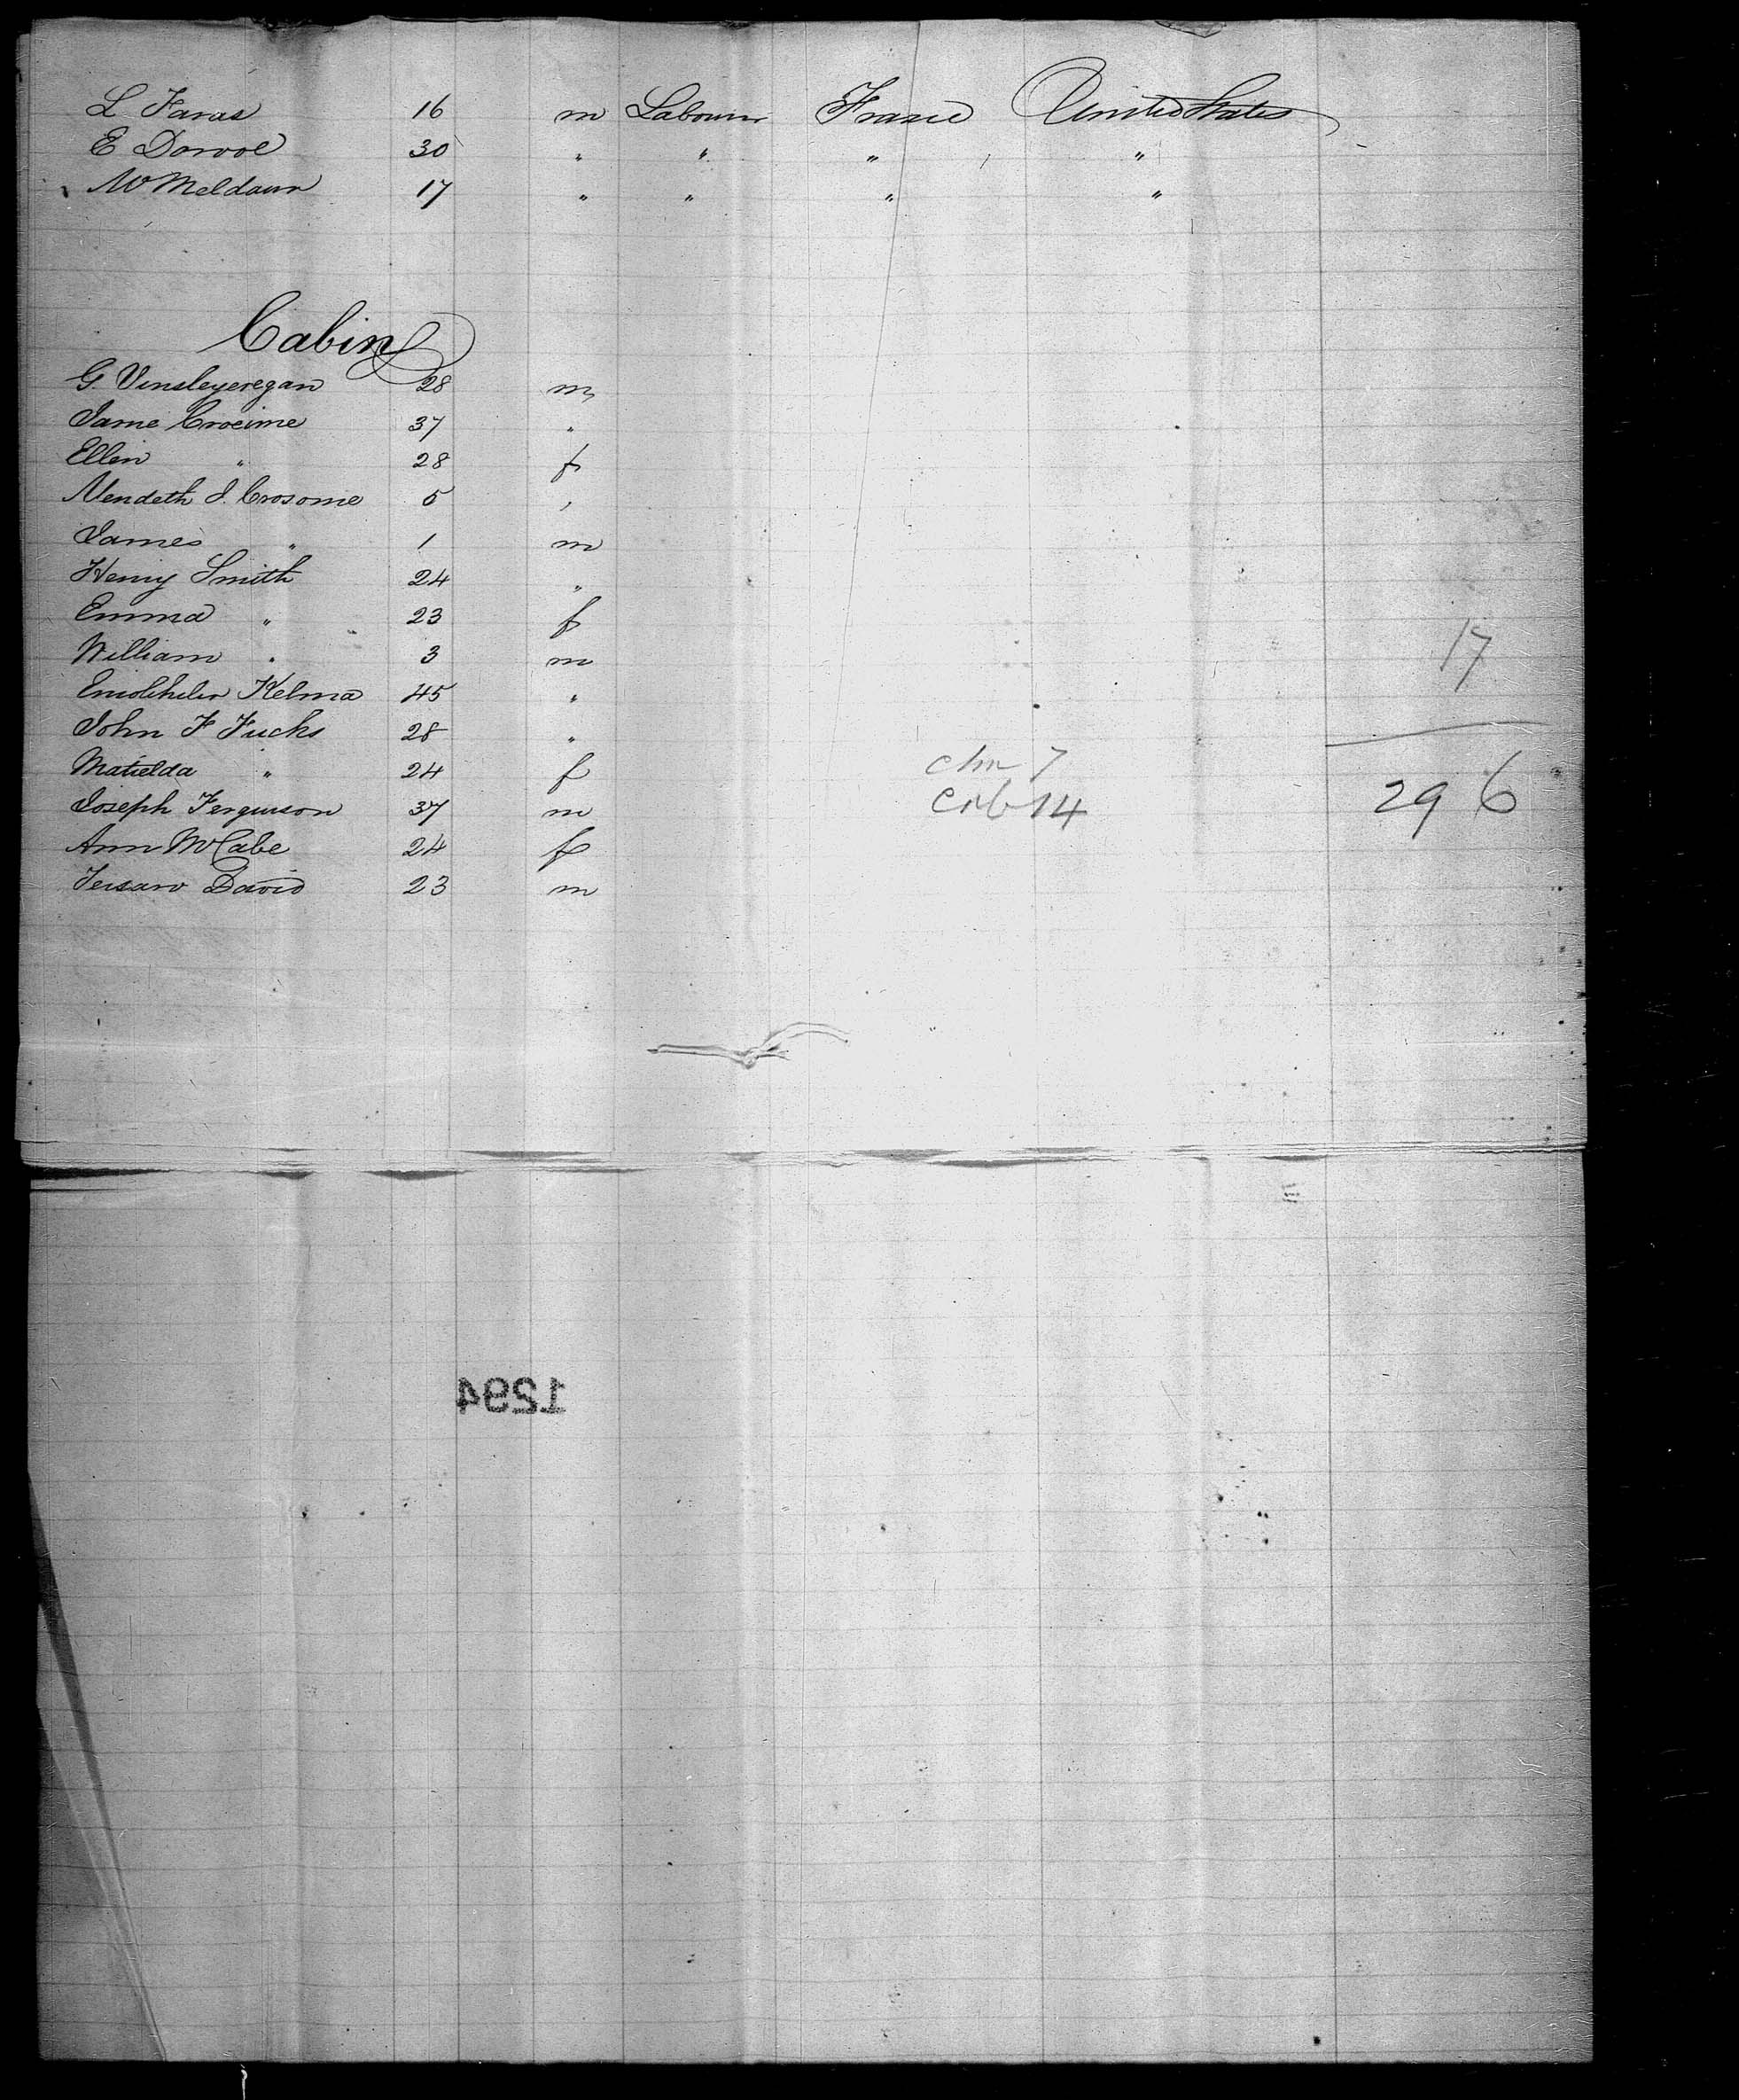 L Faras 16 m Labourer France United States
E Dowoe 30 " " " "
W Meldaun 17 " " " "
Cabin
G. Vinsleyeregan 28 m
Jame Croeime 37 "
Ellen " 28 f
Mendeth J. Crosome 5 "
James " 1 m
Henry Smith 24 "
Emma " 23 f
William " 3 m
17
Kelma 45 "
John F Fucks 28 "
Matielda " 24 f
chn 7
Joseph Ferguson 37 m
cab 14
296
Ann McCabe 24 f
David 23 m
1294